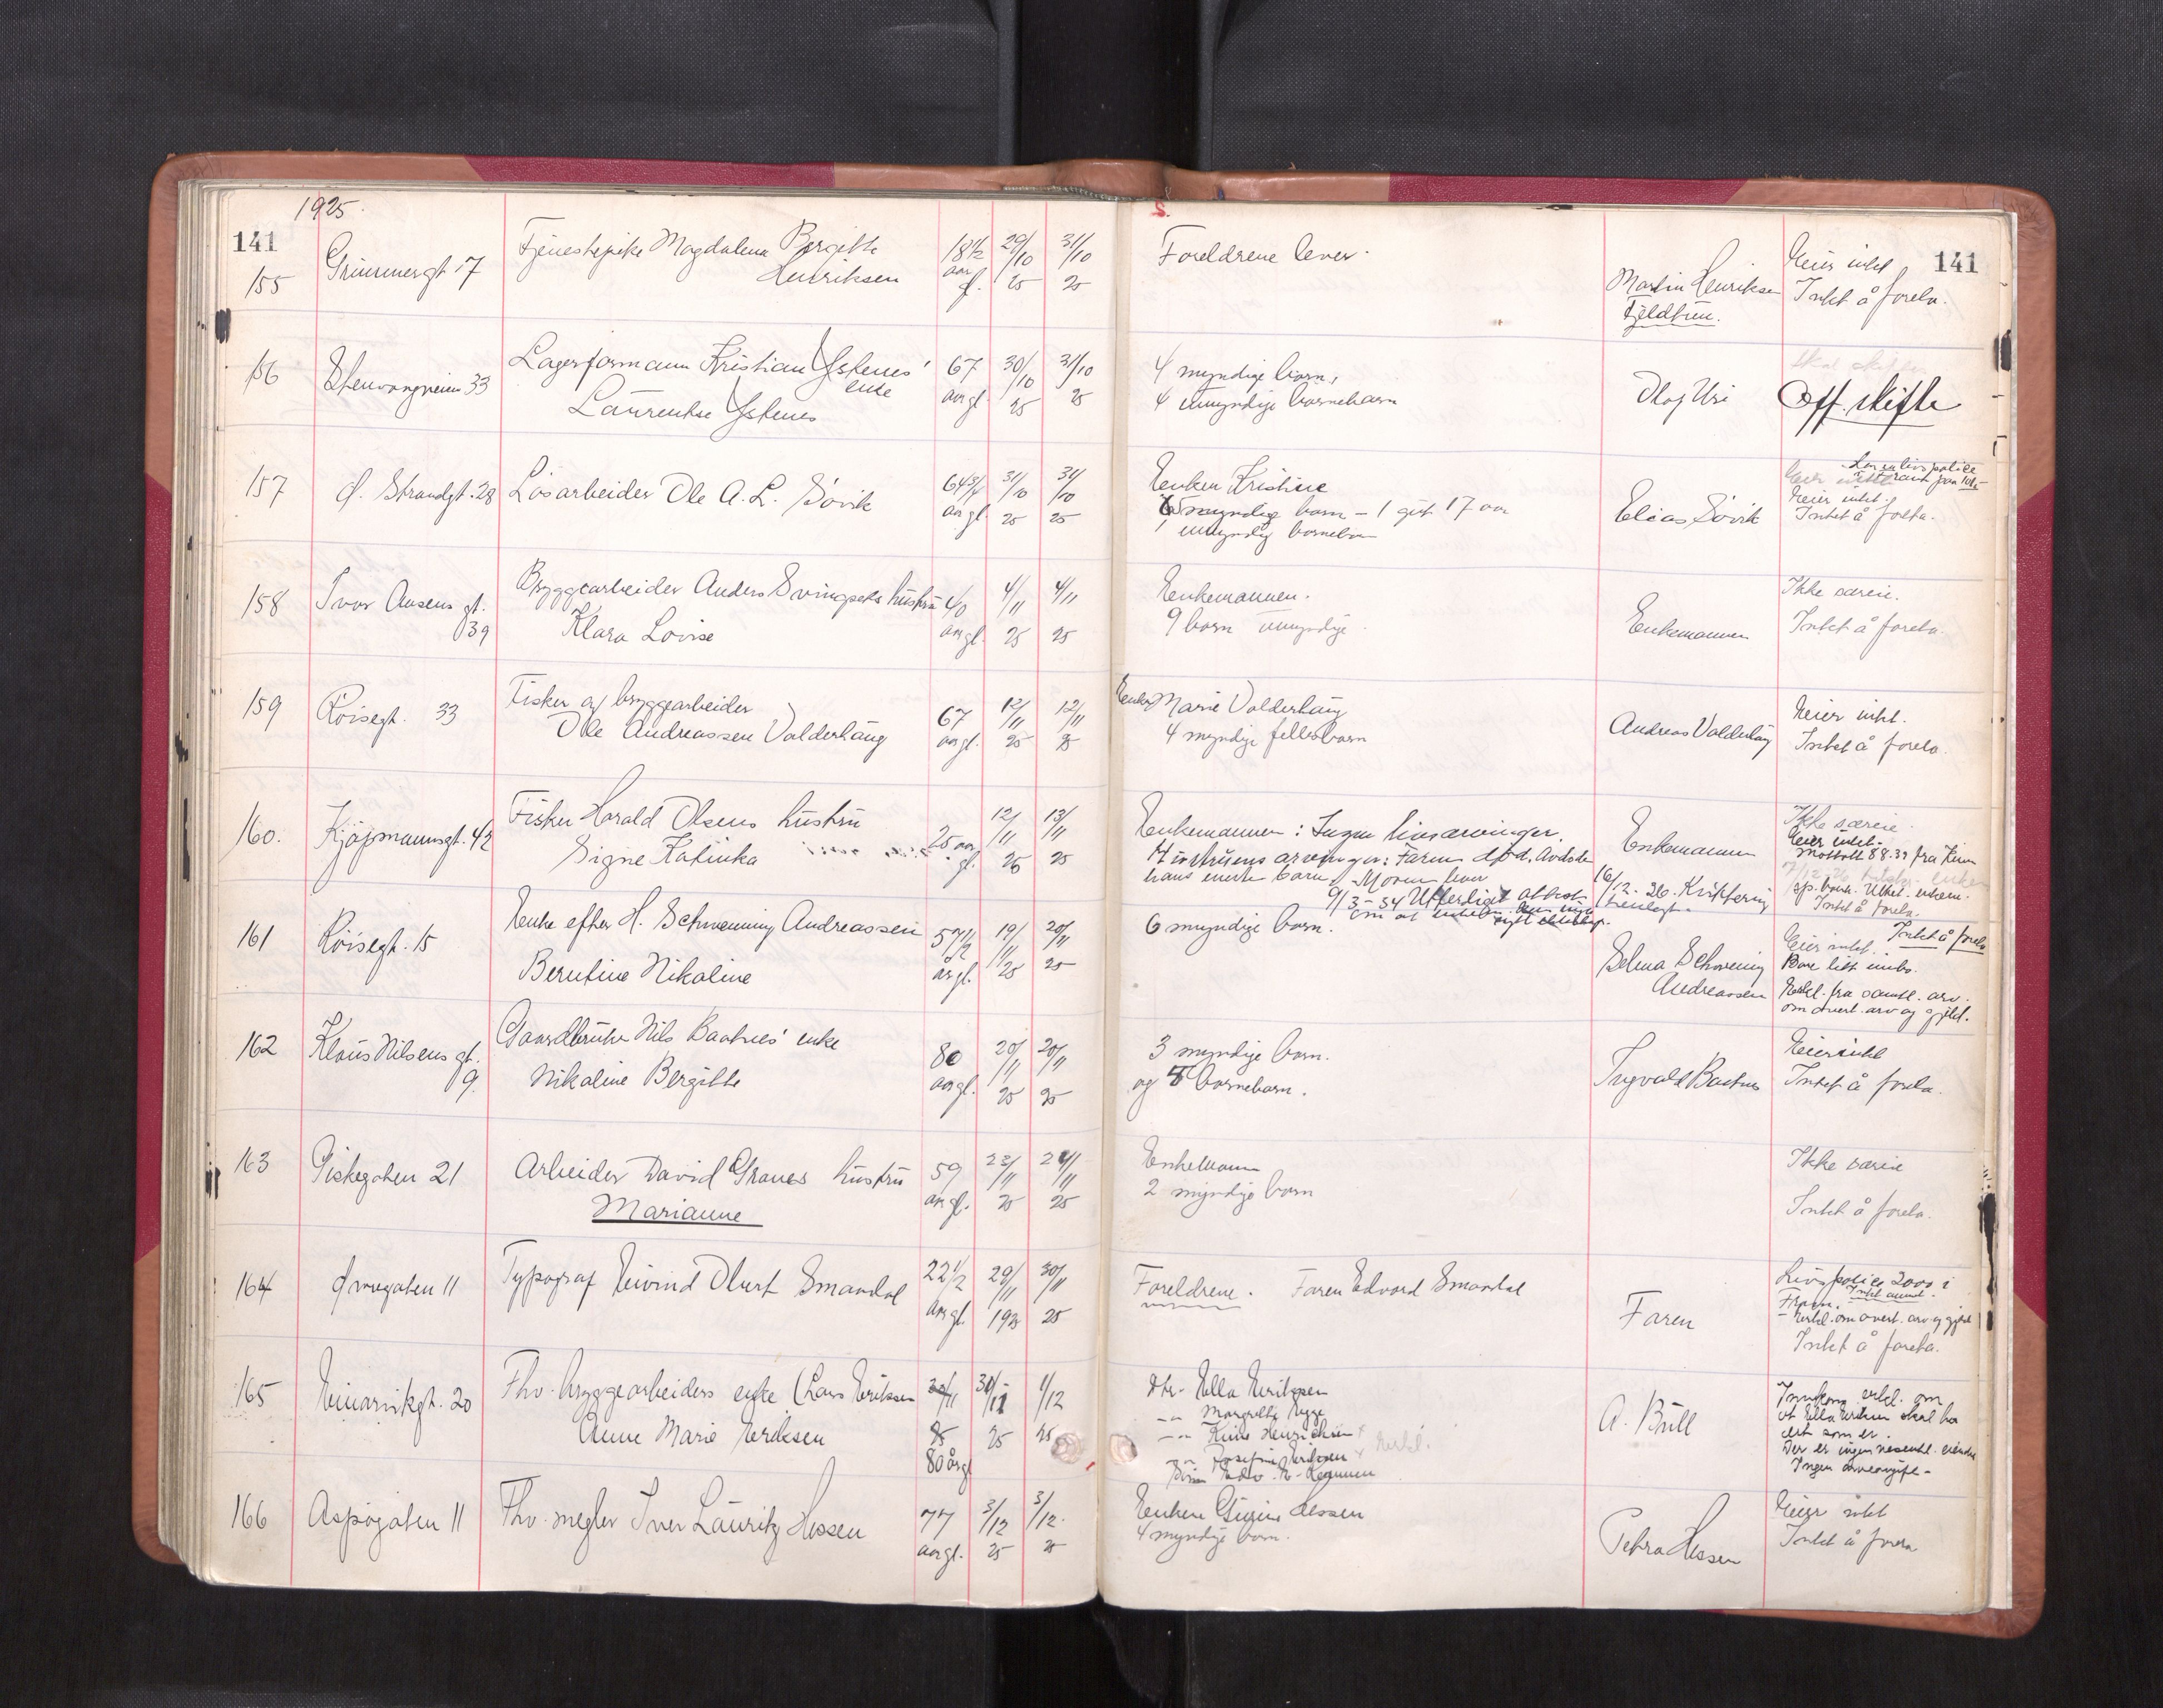 1925.
141
155 Grimmergt 17 Tjenestepike Magdalena Bergitte 18½ 29/10 31/10
Henriksen aar gl. 25 25
Foreldrene lever. Martin Henriksen Eier intet 141
Fjeldtun. Intet å foreta.
156 Stenvangveien 33 Lagerformann Kristian Ystenes' 67 30/10 31/10
enke aar gl. 25 25
Laurentse Ystenes
4 myndige barn, Olaf Uri Off. skifte
4 umyndige barnebarn
157 Ø. Strandgt. 28 Løsarbeider Ole A. L. Søvik 64¾ 31/10 31/10
aar gl. 25 25
Enken Kristine Elias Søvik Eier intet.
myndige barn - 1 gut 17 aar Intet å foreta.
1 umyndig barnebarn
158 Ivar Aasens gt. Bryggearbeider Anders Svingseths hustru 40 4/11 4/11
39 Klara Lovise aar gl. 25 25
Enkemannen. Enkemannen Ikke særeie.
9 barn umyndige. Intet å foreta.
159 Røisegt. 33 Fisker og bryggearbeider 67 12/11 12/11
Ole Andreassen Valderhaug aar gl. 25 25
Enken Marie Valderhaug Andreas Valderhaug Eier intet.
4 myndige fellesbarn Intet å foreta.
160. Kjøpmannsgt. 42 Fisker Harald Olsens hustru 25 aar 12/11 13/11
Signe Katinka gl. 25 25
Enkemannen: Ingen livsarvinger. Enkemannen Ikke særeie.
Hustruens arvinger: Faren død, Avdøde Eier intet.
hans eneste barn. Moren lever Mottatt 88.39 fra
9/3-34 Utferdiget attest 16/12-26. Kvittering
om at Intet å foreta.
161 Røisegt. 15 Enke efter H. Schwenning Andreassen 57½ 19/11 20/11
Berntine Nikoline år gl. 25 25
6 myndige barn. Selma Schwening Eier intet. Intet å foreta
Andreassen Bare litt innbo.
Erkl. fra samtl. arv.
om overt. arv og gjeld.
162 Klaus Nilsens gt. Gaardbruker Nils Baatnes' enke 80 20/11 20/11
9. Nikoline Bergitte aar gl. 25 25
3 myndige barn. Ingvald Baatnes Eier intet
og 8 barnebarn. Intet å foreta.
163 Giskegaten 21 Arbeider David Granes hustru 59 23/11 24/11
Marianne aar gl. 25 25
Enkemann Ikke særeie
2 myndige barn Intet å foreta.
164 gaten 11 Typograf Eivind Olert Smandal 22½ 29/11 30/11
aar gl. 1925 25
Foreldrene. Faren Edvard Smandal Faren Livspolice 2000 i
Fram. Intet annet.
Erkl. om overt. arv og gjeld
Intet å foreta.
165 Einarvikgt. 20 Fhv. bryggearbeiders enke (Lars Eriksen 30/11 1/12
Anne Marie Eriksen 25 25
80 år gl
Dtr. Ella Eriksen A. Bull erkl. om
-"- Margrethe at Ella Eriksen skal ha
-"- Henriksen det som er.
-"- Josefine Eriksen Der er ingen vesentl. eiendeler
Ingen arveavgift.
166 Aspøgaten 11 Fhv. megler Iver Lauritz Hessen 77 3/12 3/12.
aar gl. 25 25
Enken Gurine Hessen Petra Hessen Eier intet
4 myndige barn. Intet å foreta